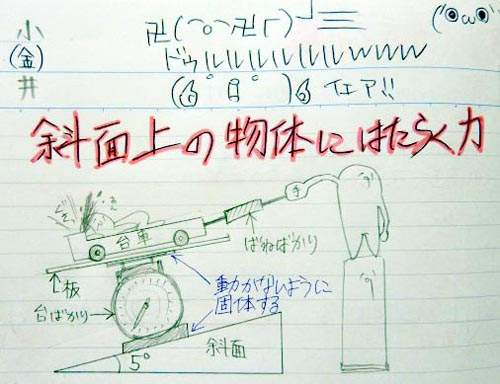 小
(金)
井
卍(^o^卍厂)┘三
ドゥルルルルルルルルwwww
(6 °日° )6 イェア!!
(´◉ω◉`
斜面上の物体にはたらく力
台車
手
ばねばかり
板
動かないように
固体する
台ばかり
斜面
5°